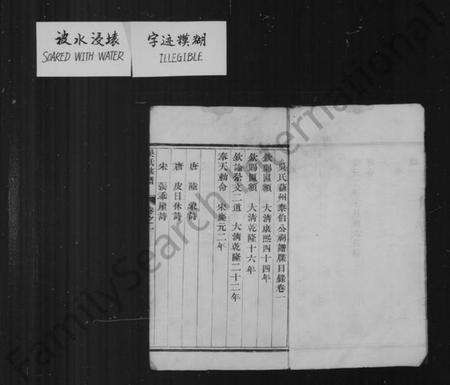 被水浸壞
SOAKED WITH WATER
字迹模糊
ILLEGIBLE
吳氏蘇州泰伯公祠譜牒目錄卷一
欽賜匾額 大清康熙四十四年
欽賜匾額 大清乾隆十六年
欽諭祭文二道 大清乾隆二十二年
奉天勅命 宋慶元二年
唐 陸 蒙詩
唐 皮日休詩
宋 張 詩
FamilySearch International